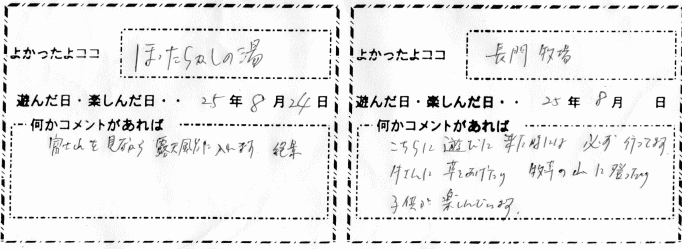 よかったよココ ほったらかしの湯
遊んだ日・楽しんだ日・・ 25年 8月 24日
何かコメントがあれば
富士山を見ながら 露天風呂に入れます 絶景
よかったよココ 長門牧場
遊んだ日・楽しんだ日・・ 25年 8月 日
何かコメントがあれば
こちらに遊びに来た時には 必ず行ってます
牛さんに草をあげたり 牧草の山に登ったり
子供が楽しんでいます。